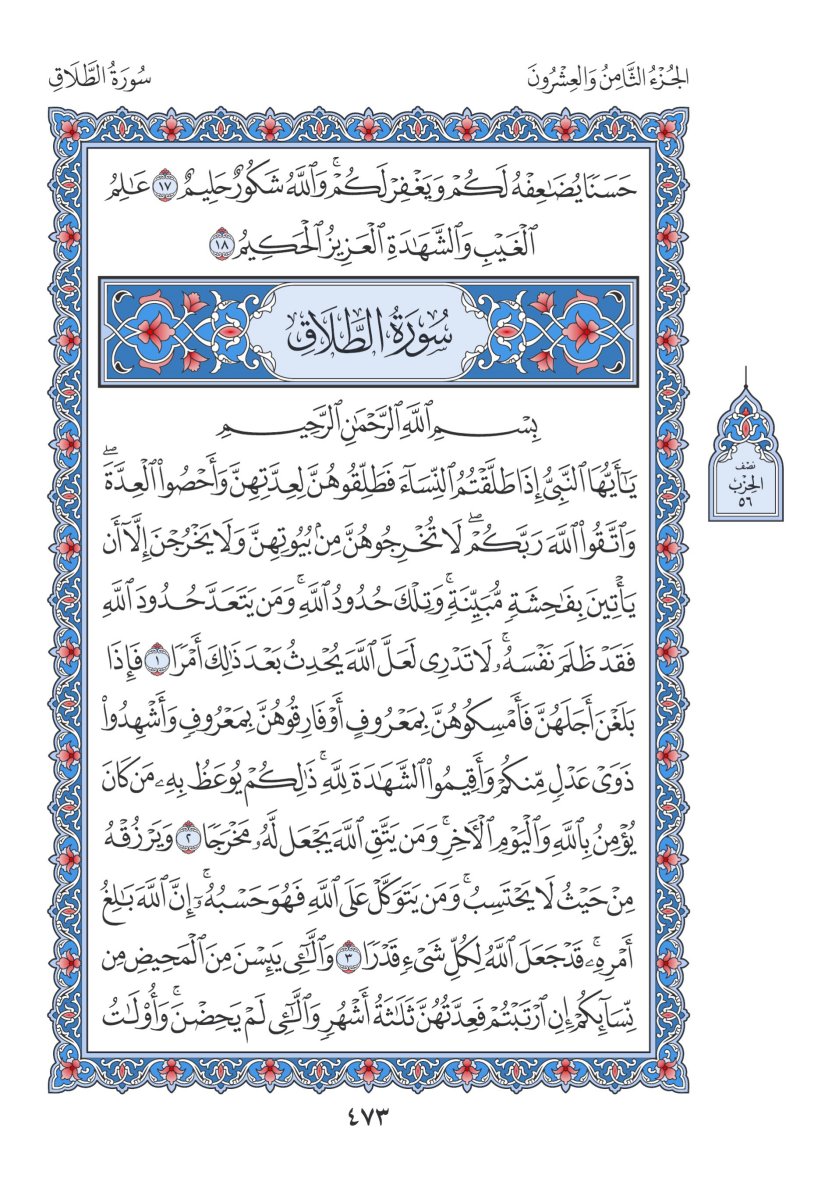 الجُزْءُ الثَّامِنُ وَالعِشْرُونَ
سُورَةُ الطَّلَاقِ
حَسَنًا يُضَٰعِفْهُ لَكُمْ وَيَغْفِرْ لَكُمْۚ وَٱللَّهُ شَكُورٌ حَلِيمٌ ١٧ عَٰلِمُ
ٱلْغَيْبِ وَٱلشَّهَٰدَةِ ٱلْعَزِيزُ ٱلْحَكِيمُ ١٨
سُورَةُ الطَّلَاقِ
بِسْمِ ٱللَّهِ ٱلرَّحْمَٰنِ ٱلرَّحِيمِ
يَٰٓأَيُّهَا ٱلنَّبِىُّ إِذَا طَلَّقْتُمُ ٱلنِّسَآءَ فَطَلِّقُوهُنَّ لِعِدَّتِهِنَّ وَأَحْصُوا۟ ٱلْعِدَّةَۖ
وَٱتَّقُوا۟ ٱللَّهَ رَبَّكُمْۖ لَا تُخْرِجُوهُنَّ مِنۢ بُيُوتِهِنَّ وَلَا يَخْرُجْنَ إِلَّآ أَن
يَأْتِينَ بِفَٰحِشَةٍ مُّبَيِّنَةٍۚ وَتِلْكَ حُدُودُ ٱللَّهِۚ وَمَن يَتَعَدَّ حُدُودَ ٱللَّهِ
فَقَدْ ظَلَمَ نَفْسَهُۥۚ لَا تَدْرِى لَعَلَّ ٱللَّهَ يُحْدِثُ بَعْدَ ذَٰلِكَ أَمْرًا ١ فَإِذَا
بَلَغْنَ أَجَلَهُنَّ فَأَمْسِكُوهُنَّ بِمَعْرُوفٍ أَوْ فَارِقُوهُنَّ بِمَعْرُوفٍ وَأَشْهِدُوا۟
ذَوَىْ عَدْلٍ مِّنكُمْ وَأَقِيمُوا۟ ٱلشَّهَٰدَةَ لِلَّهِۚ ذَٰلِكُمْ يُوعَظُ بِهِۦ مَن كَانَ
يُؤْمِنُ بِٱللَّهِ وَٱلْيَوْمِ ٱلْءَاخِرِۚ وَمَن يَتَّقِ ٱللَّهَ يَجْعَل لَّهُۥ مَخْرَجًا ٢ وَيَرْزُقْهُ
مِنْ حَيْثُ لَا يَحْتَسِبُۚ وَمَن يَتَوَكَّلْ عَلَى ٱللَّهِ فَهُوَ حَسْبُهُۥٓۚ إِنَّ ٱللَّهَ بَٰلِغُ
أَمْرِهِۦۚ قَدْ جَعَلَ ٱللَّهُ لِكُلِّ شَىْءٍ قَدْرًا ٣ وَٱلَّٰٓـِٔى يَئِسْنَ مِنَ ٱلْمَحِيضِ مِن
نِّسَآئِكُمْ إِنِ ٱرْتَبْتُمْ فَعِدَّتُهُنَّ ثَلَٰثَةُ أَشْهُرٍ وَٱلَّٰٓـِٔى لَمْ يَحِضْنَۚ وَأُو۟لَٰتُ
نصف
الحزب
٥٦
٤٧٣